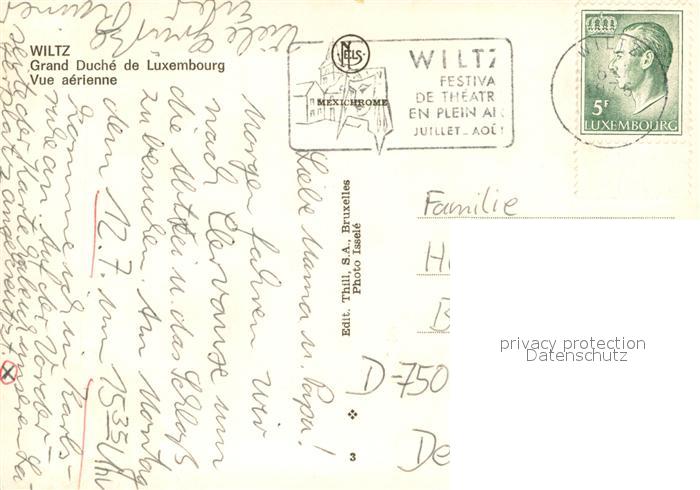 WILTZ
Grand Duché de Luxembourg
Vue aérienne
NELS
MEXICHROME
WILTZ
FESTIVA
DE THÉATR
EN PLEIN AI
JUILLET - AOÛT
WILTZ
5F
LUXEMBOURG
Edit. Thill, S.A., Bruxelles
Photo Isselé
3
Liebe Mama u. Papa!
Morgen fahren wir
nach Clervaux um
die Abtei u. das Schloß
zu besuchen. Am Montag
dem 12.7. um 15³³ Uhr
komme ich in Karls-
ruhe an. Auf der Vorder-
seite der Karte
Viele Grüße
Familie
H
B
D-750
De
privacy protection
Datenschutz